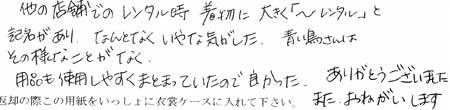 他の店舗でのレンタル時 着物に大きく「〜レンタル」と
記名があり、なんとなくいやな気がした。青い鳥さんは
その様なことがなく、
用品も使用しやすくまとまっていたので良かった。ありがとうございました
また、おねがいします
返却の際この用紙をいっしょに衣裳ケースに入れて下さい。